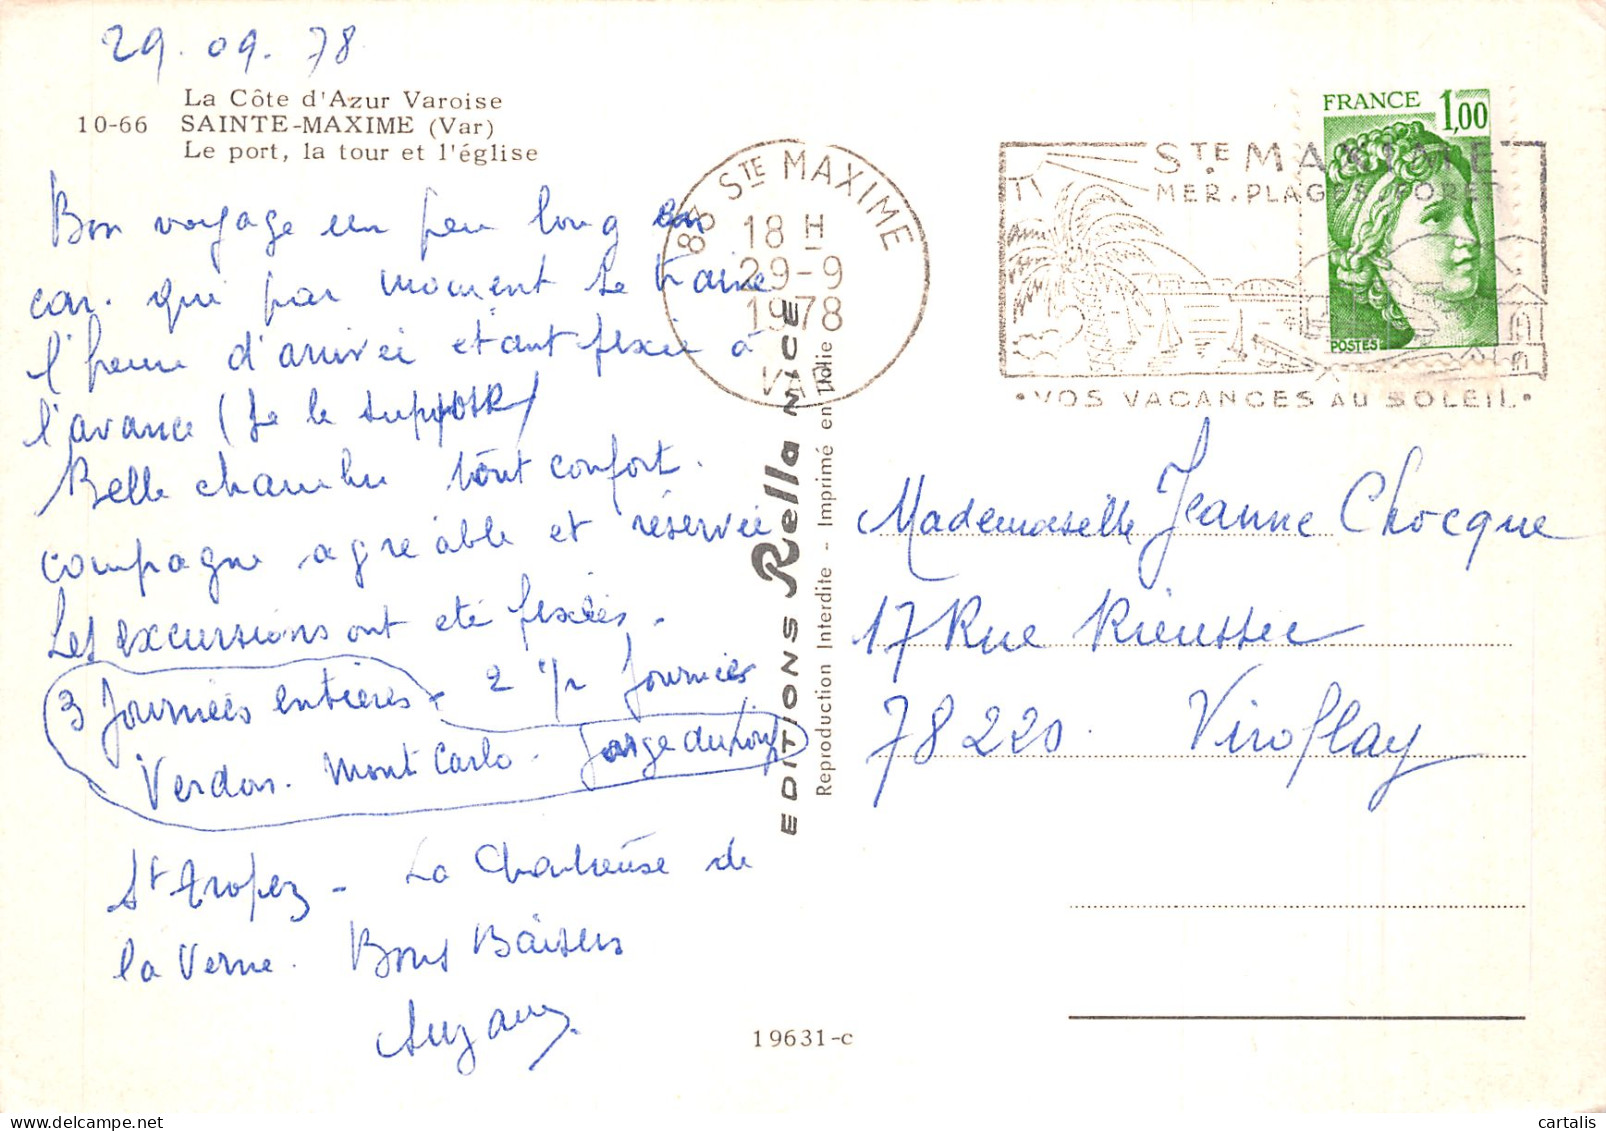 29.09.78
La Côte d'Azur Varoise
10-66 SAINTE-MAXIME (Var)
Le port, la tour et l'église
Bon voyage un peu long en
car. qui par moment se traine
l'heure d'arrivée etant fixée à
l'avance (Je le supporte)
Belle chambre tout confort.
compagne agréable et réservée
Les excursions ont été fixées.
3 Journées entières - 2 1/2 Journées
Verdon. Mont Carlo. Gorge du Loup
St Tropez - La Chartreuse de
la Verne. Bons Baisers
Suzanne
EDITIONS Rella NICE
Reproduction Interdite - Imprimé en Italie
19631-c
83 STE MAXIME
18 H
29-9
1978
VAR
STE MAXIME
MER. PLAGES. FORET
•VOS VACANCES AU SOLEIL•
FRANCE 1,00
POSTES
Mademoiselle Jeanne Chocque
17 Rue Rieussec
78220. Viroflay
cartalis